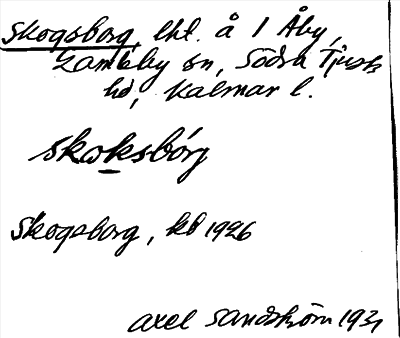 Skogsborg, lht. å 1 Åby,
Gamleby sn, Södra Tjusts
hd, Kalmar l.
skoksbórg
Skogsborg, kb 1926
Axel Sandström 1931